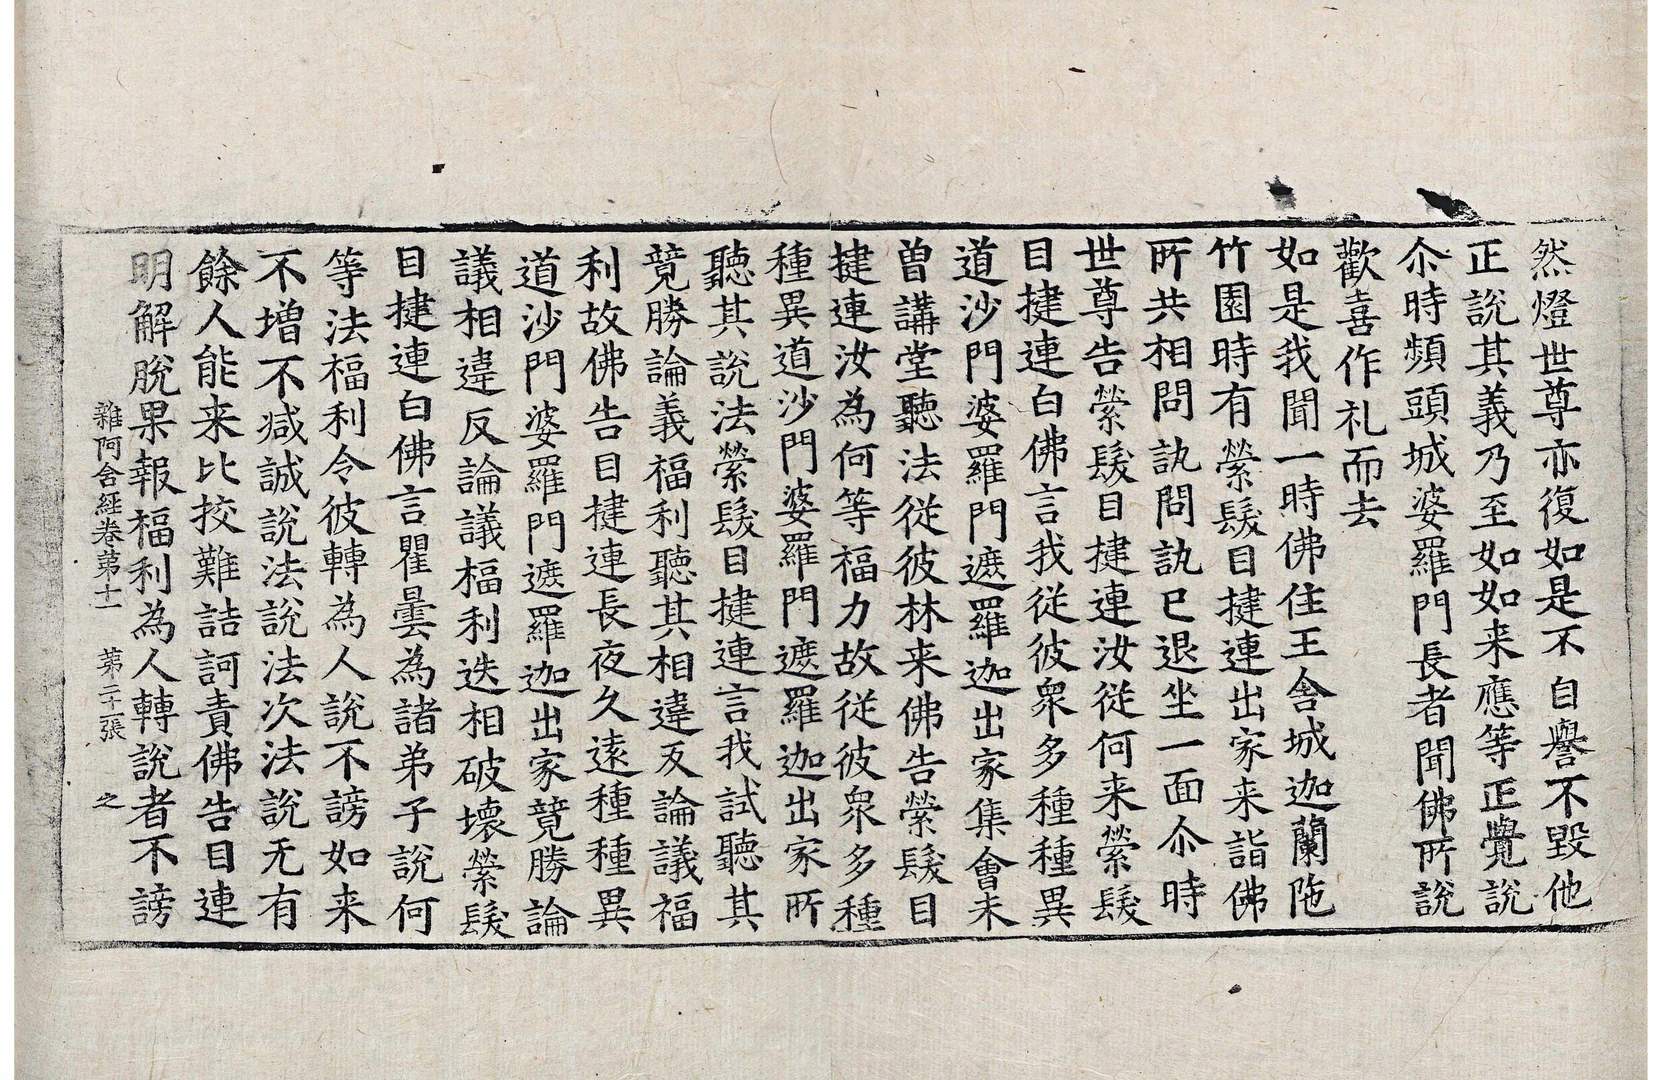 然燈世尊亦復如是不自譽不毀他
正說其義乃至如如来應等正覺說
尒時頻頭城婆羅門長者聞佛所說
歡喜作礼而去
如是我聞一時佛住王舍城迦蘭陁
竹園時有縈髮目揵連出家来詣佛
所共相問訊問訊已退坐一面尒時
世尊告縈髮目揵連汝從何来縈髮
目揵連白佛言我從彼衆多種種異
道沙門婆羅門遮羅迦出家集會未
曽講堂聽法從彼林来佛告縈髮目
揵連汝為何等福力故從彼衆多種
種異道沙門婆羅門遮羅迦出家所
聽其說法縈髮目揵連言我試聽其
競勝論義福利聽其相違反論議福
利故佛告目揵連長夜久逺種種異
道沙門婆羅門遮羅迦出家競勝論
議相違反論議福利迭相破壞縈髮
目揵連白佛言瞿曇為諸弟子說何
等法福利令彼轉為人說不謗如来
不增不減誠說法說法次法說无有
餘人能来比挍難詰訶責佛告目連
明解脫果報福利為人轉說者不謗
雜阿含經卷第十一 第二十張 之